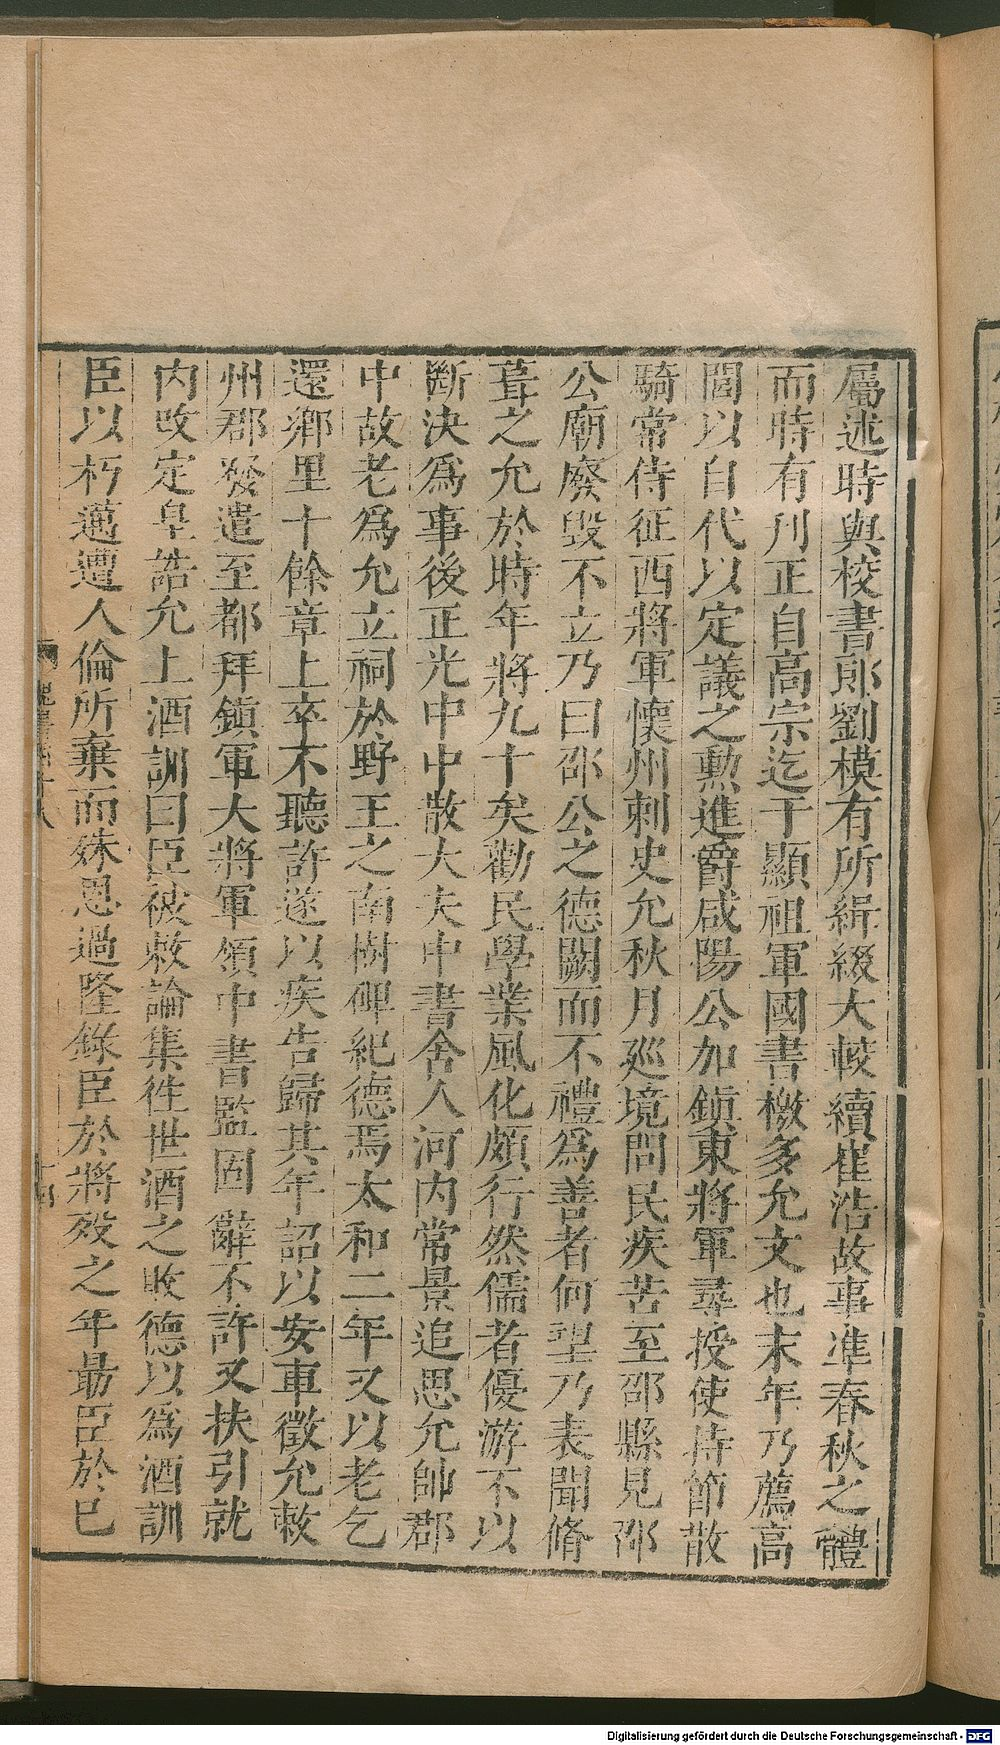 屬述時與校書郎劉模有所緝綴大較續崔浩故事准春秋之體
而時有刋正自高宗迄于顯祖軍國書檄多允文也末年乃薦高
閭以自代以定議之勲進爵咸陽公加鎭東將軍尋授使持節散
騎常侍征西將軍懷州刺史允秋月廵境問民疾苦至邵縣見邵
公廟廢毀不立乃曰邵公之德闕而不禮爲善者何望乃表聞脩
葺之允於時年將九十矣勸民學業風化頗行然儒者優游不以
斷決爲事後正光中中散大夫中書舍人河内常景追思允帥郡
中故老爲允立祠於野王之南樹碑紀德焉太和二年又以老乞
還鄉里十餘章上卒不聽許遂以疾告歸其年詔以安車徵允敕
州郡發遣至都拜鎭軍大將軍領中書監固辭不許又扶引就
内改定皇誥允上酒訓曰臣被敕論集徃世酒之敗德以爲酒訓
臣以朽邁遭人倫所棄而殊恩過隆錄臣於將歿之年勗臣於已
魏書 十八
十四
Digitalisierung gefördert durch die Deutsche Forschungsgemeinschaft - DFG